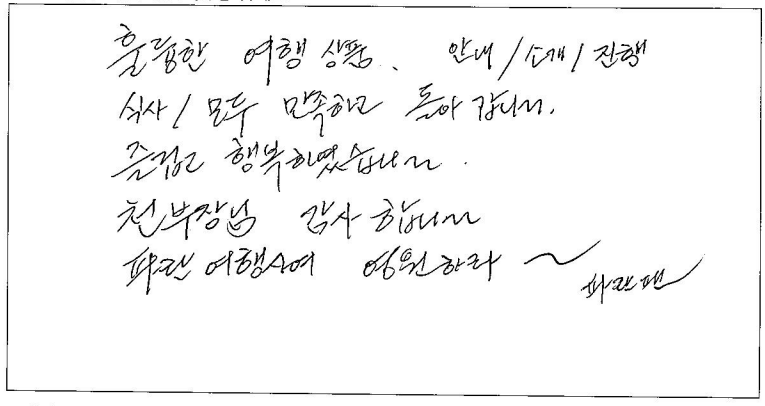 훌륭한 여행 상품. 안내/소개/진행
식사/모두 만족하고 돌아 갑니다.
즐겁고 행복하였습니다.
천부장님 감사 합니다
파란 여행사여 영원하라 ~
파란팬